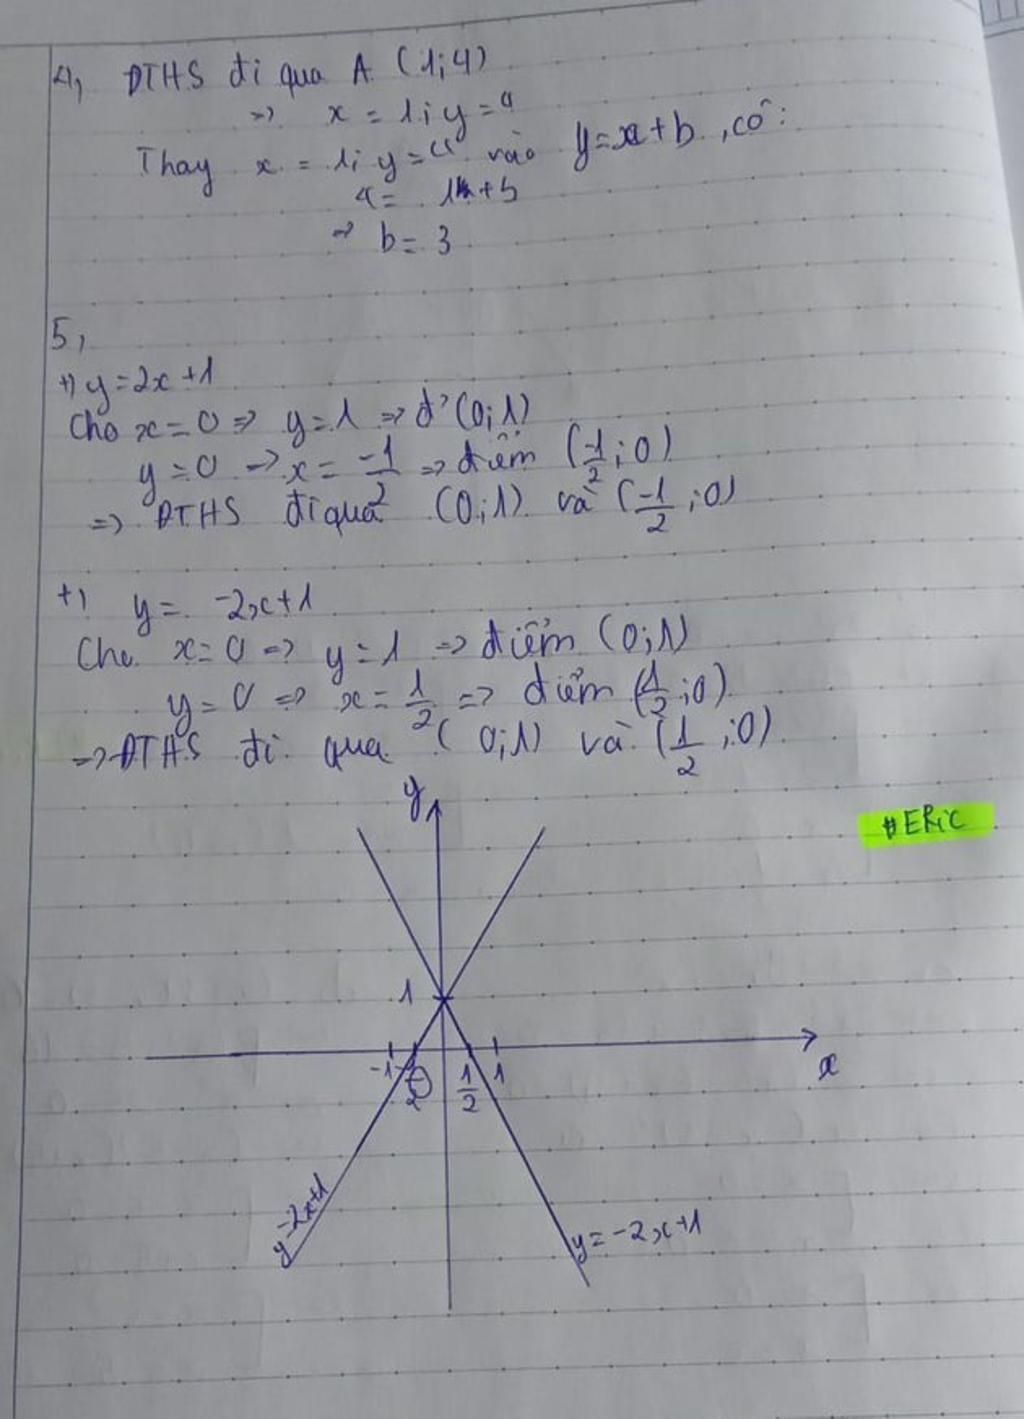 4, ĐTHS đi qua A (1;4)
=> x = 1; y = 4
Thay x = 1; y = 4 vào y = x + b, có:
4 = 1 + b
=> b = 3
5,
+) y = 2x + 1
Cho x = 0 => y = 1 => đ' (0;1)
y = 0 => x = -1/2 => điểm (-1/2; 0)
=> ĐTHS đi qua (0;1) và (-1/2; 0)
+) y = -2x + 1
Cho x = 0 => y = 1 => điểm (0;1)
y = 0 => x = 1/2 => điểm (1/2; 0)
=> ĐTHS đi qua (0;1) và (1/2; 0)
y
#ERiC
1
x
-1 1/2 1
y=2x+1
y = -2x+1